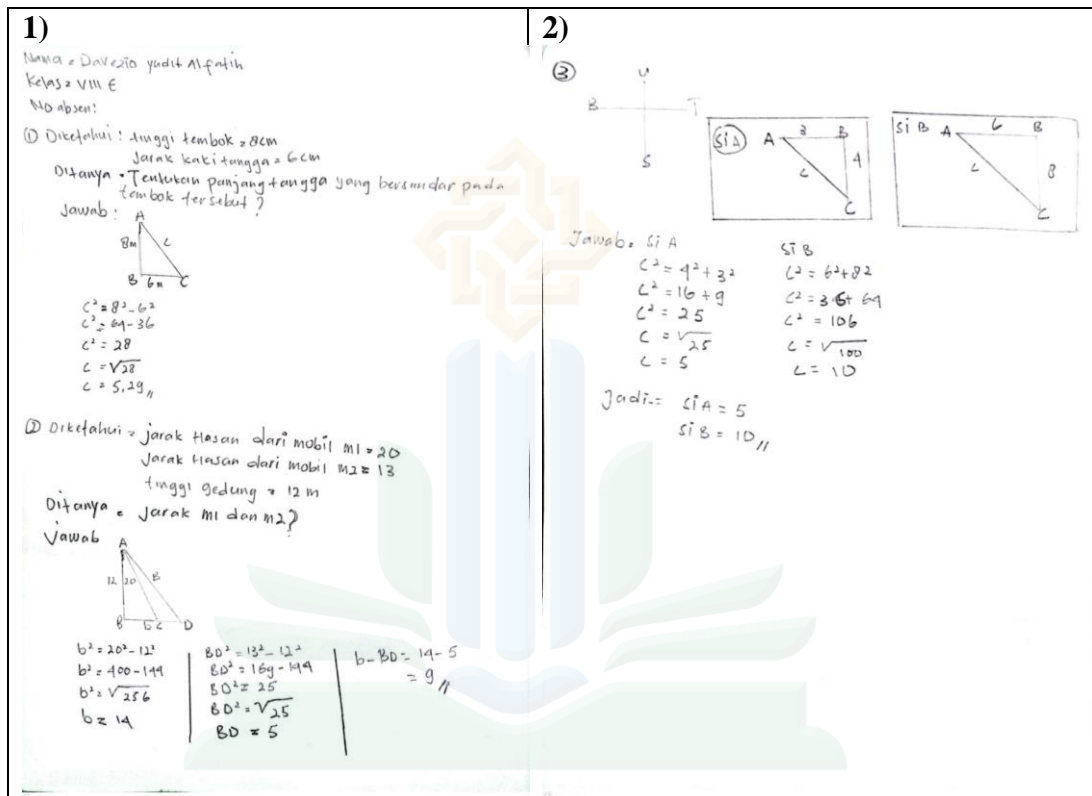 1)
Nama = Davezio yudit Alfatih
Kelas = VIII E
No absen :
① Diketahui : tinggi tembok = 8cm
Jarak kaki tangga = 6cm
Ditanya = Tentukan panjang tangga yang bersandar pada
tembok tersebut ?
Jawab :
A
8m c
B 6m C
c² = 8² - 6²
c² = 64 - 36
c² = 28
c = √28
c = 5,29 //
② Diketahui = jarak Hasan dari mobil m1 = 20
jarak Hasan dari mobil m2 = 13
tinggi gedung = 12 m
Ditanya = jarak m1 dan m2 ?
Jawab
A
12 20 B
B b C D
b² = 20² - 12²
b² = 400 - 144
b² = √256
b = 14
BD² = 13² - 12²
BD² = 169 - 144
BD² = 25
BD² = √25
BD = 5
b - BD = 14 - 5
= 9 //
2)
③
U
B T
S
Si A A 3 B
c 4
C
Si B A 6 B
c 8
C
Jawab = Si A
c² = 4² + 3²
c² = 16 + 9
c² = 25
c = √25
c = 5
Si B
c² = 6² + 82
c² = 36 + 64
c² = 106
c = √100
c = 10
Jadi = Si A = 5
Si B = 10 //